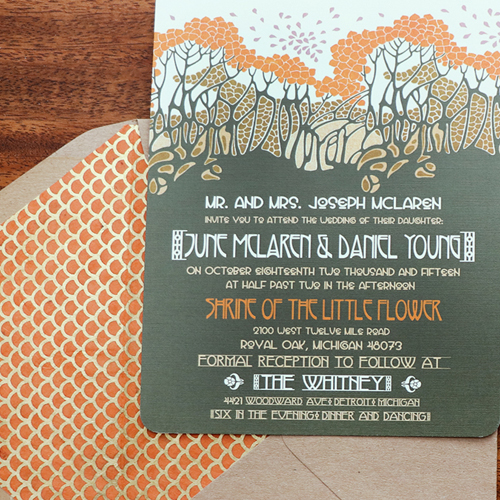 MR. AND MRS. JOSEPH MCLAREN
INVITE YOU TO ATTEND THE WEDDING OF THEIR DAUGHTER:
JUNE MCLAREN & DANIEL YOUNG
ON OCTOBER EIGHTEENTH TWO THOUSAND AND FIFTEEN
AT HALF PAST TWO IN THE AFTERNOON
SHRINE OF THE LITTLE FLOWER
2100 WEST TWELVE MILE ROAD
ROYAL OAK, MICHIGAN 48073
FORMAL RECEPTION TO FOLLOW AT
THE WHITNEY
4421 WOODWARD AVE DETROIT MICHIGAN
SIX IN THE EVENING DINNER AND DANCING